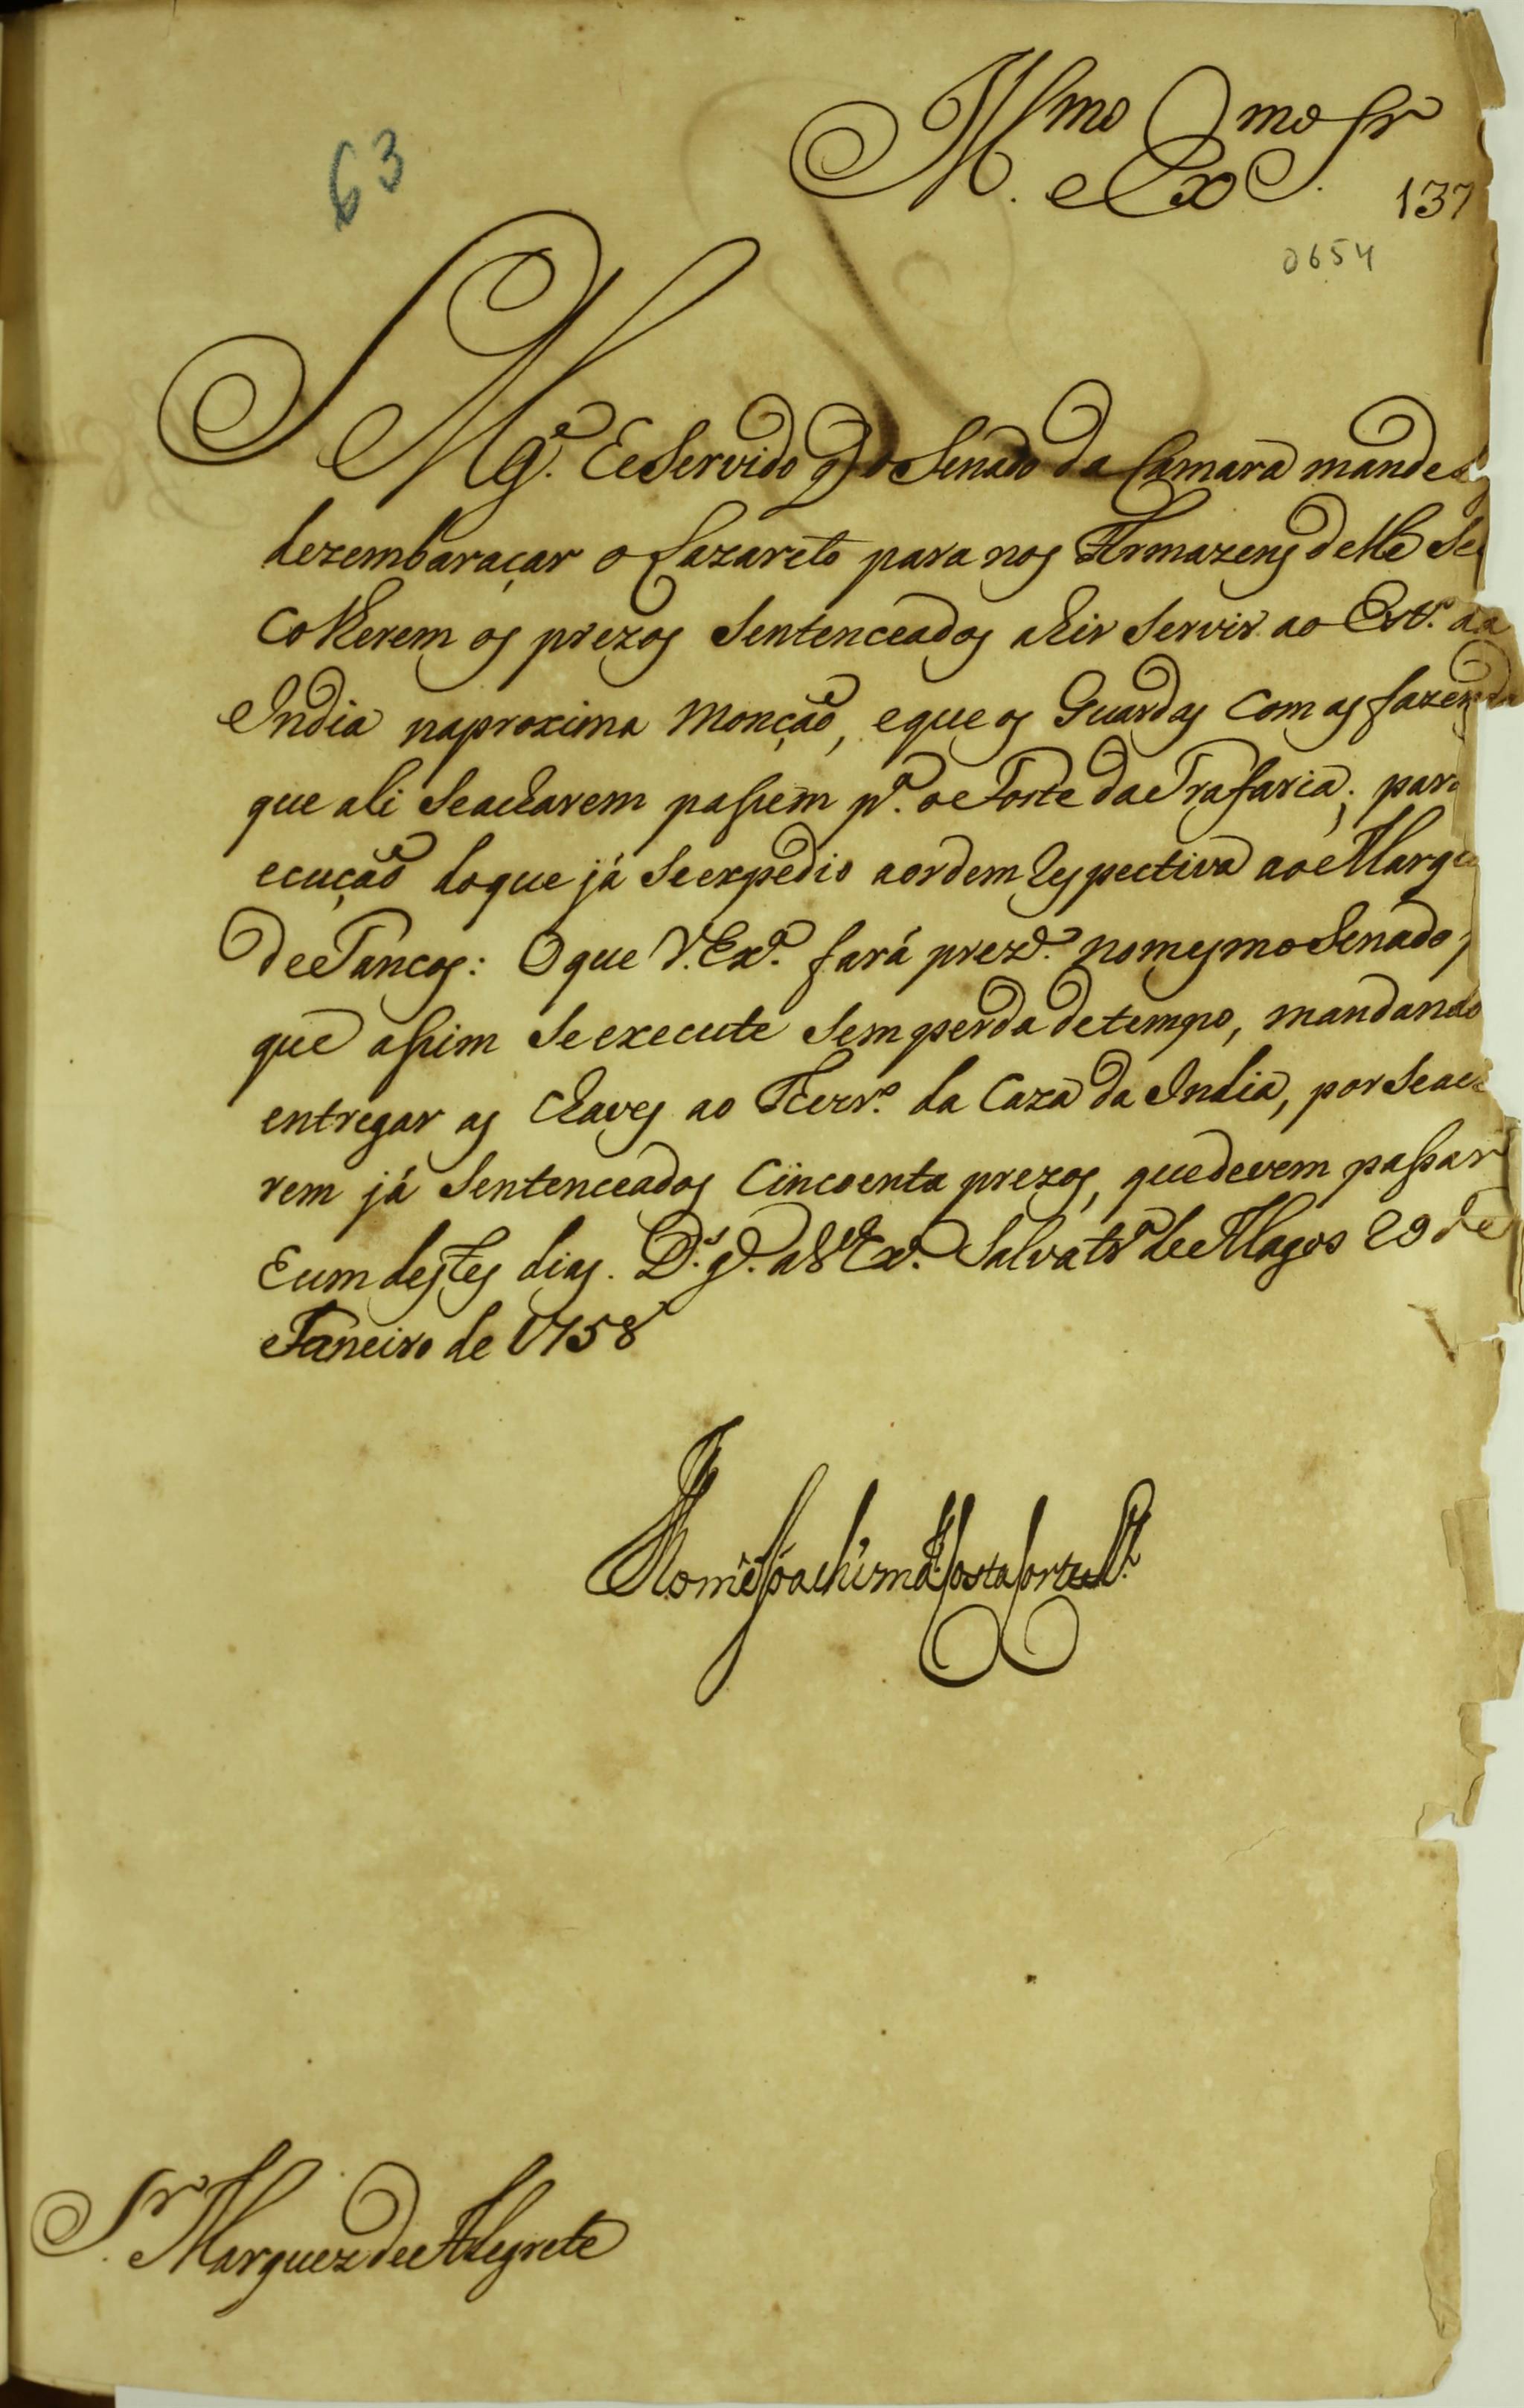 Illmo e Exmo Sr.
63
137
0654
S Mgde. he Servido q̃ o Senado da Camara mande
dezembaraçar o Lazareto para nos Armazens delle Se
Colherem os prezos Sentenceados a hir Servir ao Estº. da
India naproxima Monção, eque os Guardas Com as fazenda
que ali Seacharem passem pª. o Forte da Trafaria; para
ecução doque já Seexpedio aordem respectiva ao Marque
de Tancos: O que V. Exª. fará prezte. nomesmo Senado,
que assim Seexecute Sem perda detempo, mandando
entregar as Chaves ao Thezrº. da Caza da India, por Seach
rem já Sentenceados Cincoenta prezos, quedevem passar
hum destes dias. Ds. gde. a V. Exª. Salvatrª. de Magos 29 de
Janeiro de 1758
Thomé Joachim da Costa Corte Rl.
Sr. Marquez de Alegrete